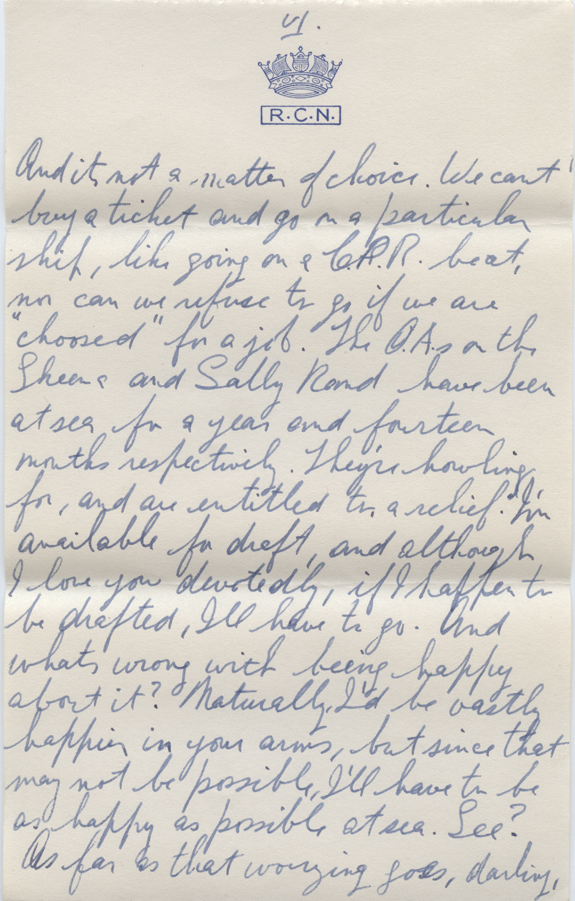 VI.
R.C.N.
And its not a matter of choice. We cant
buy a ticket and go on a particular
ship, like going on a C.P.R. boat,
nor can we refuse to go if we are
"choosed" for a job. The O.A.s on the
Skeena and Sally Rand have been
at sea for a year and fourteen
months respectively. They're howling
for, and are entitled to, a relief. I'm
available for draft, and although
I love you devotedly, if I happen to
be drafted, I'll have to go. And
whats wrong with being happy
about it? Naturally, I'd be vastly
happier in your arms, but since that
may not be possible, I'll have to be
as happy as possible at sea. See?
As far as that worrying goes, darling,